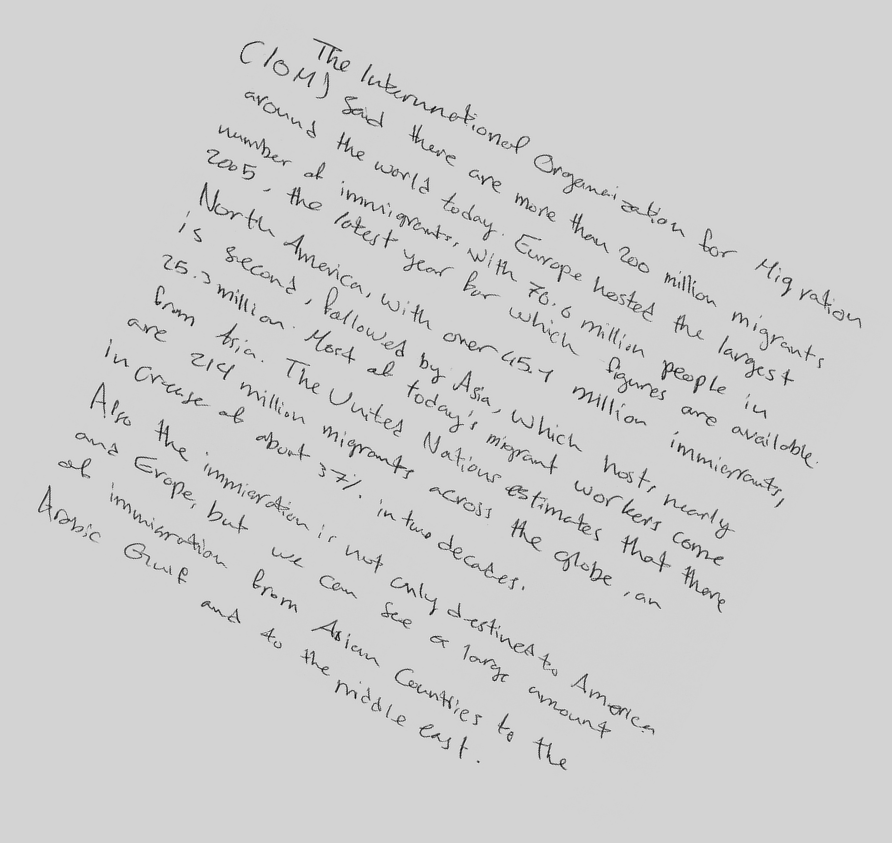 The Internnational Orgamaization for Migration
(IOM) said there are more than 200 million migrants
around the world today. Europe hosted the largest
number of immigrants, with 70.6 million people in
2005, the latest year for which figures are available.
North America, with over 45.1 million immigrants,
is second, followed by Asia, which hosts nearly
25.3 million. Most of today's migrant workers come
from Asia. The United Nations estimates that there
are 214 million migrants across the globe, an
increase of about 37% in two decates.
Also the immigration is not only destined to America
and Erope, but we can see a large amount
of immigration from Asian Countries to the
Arabic Gulf and to the middle east.